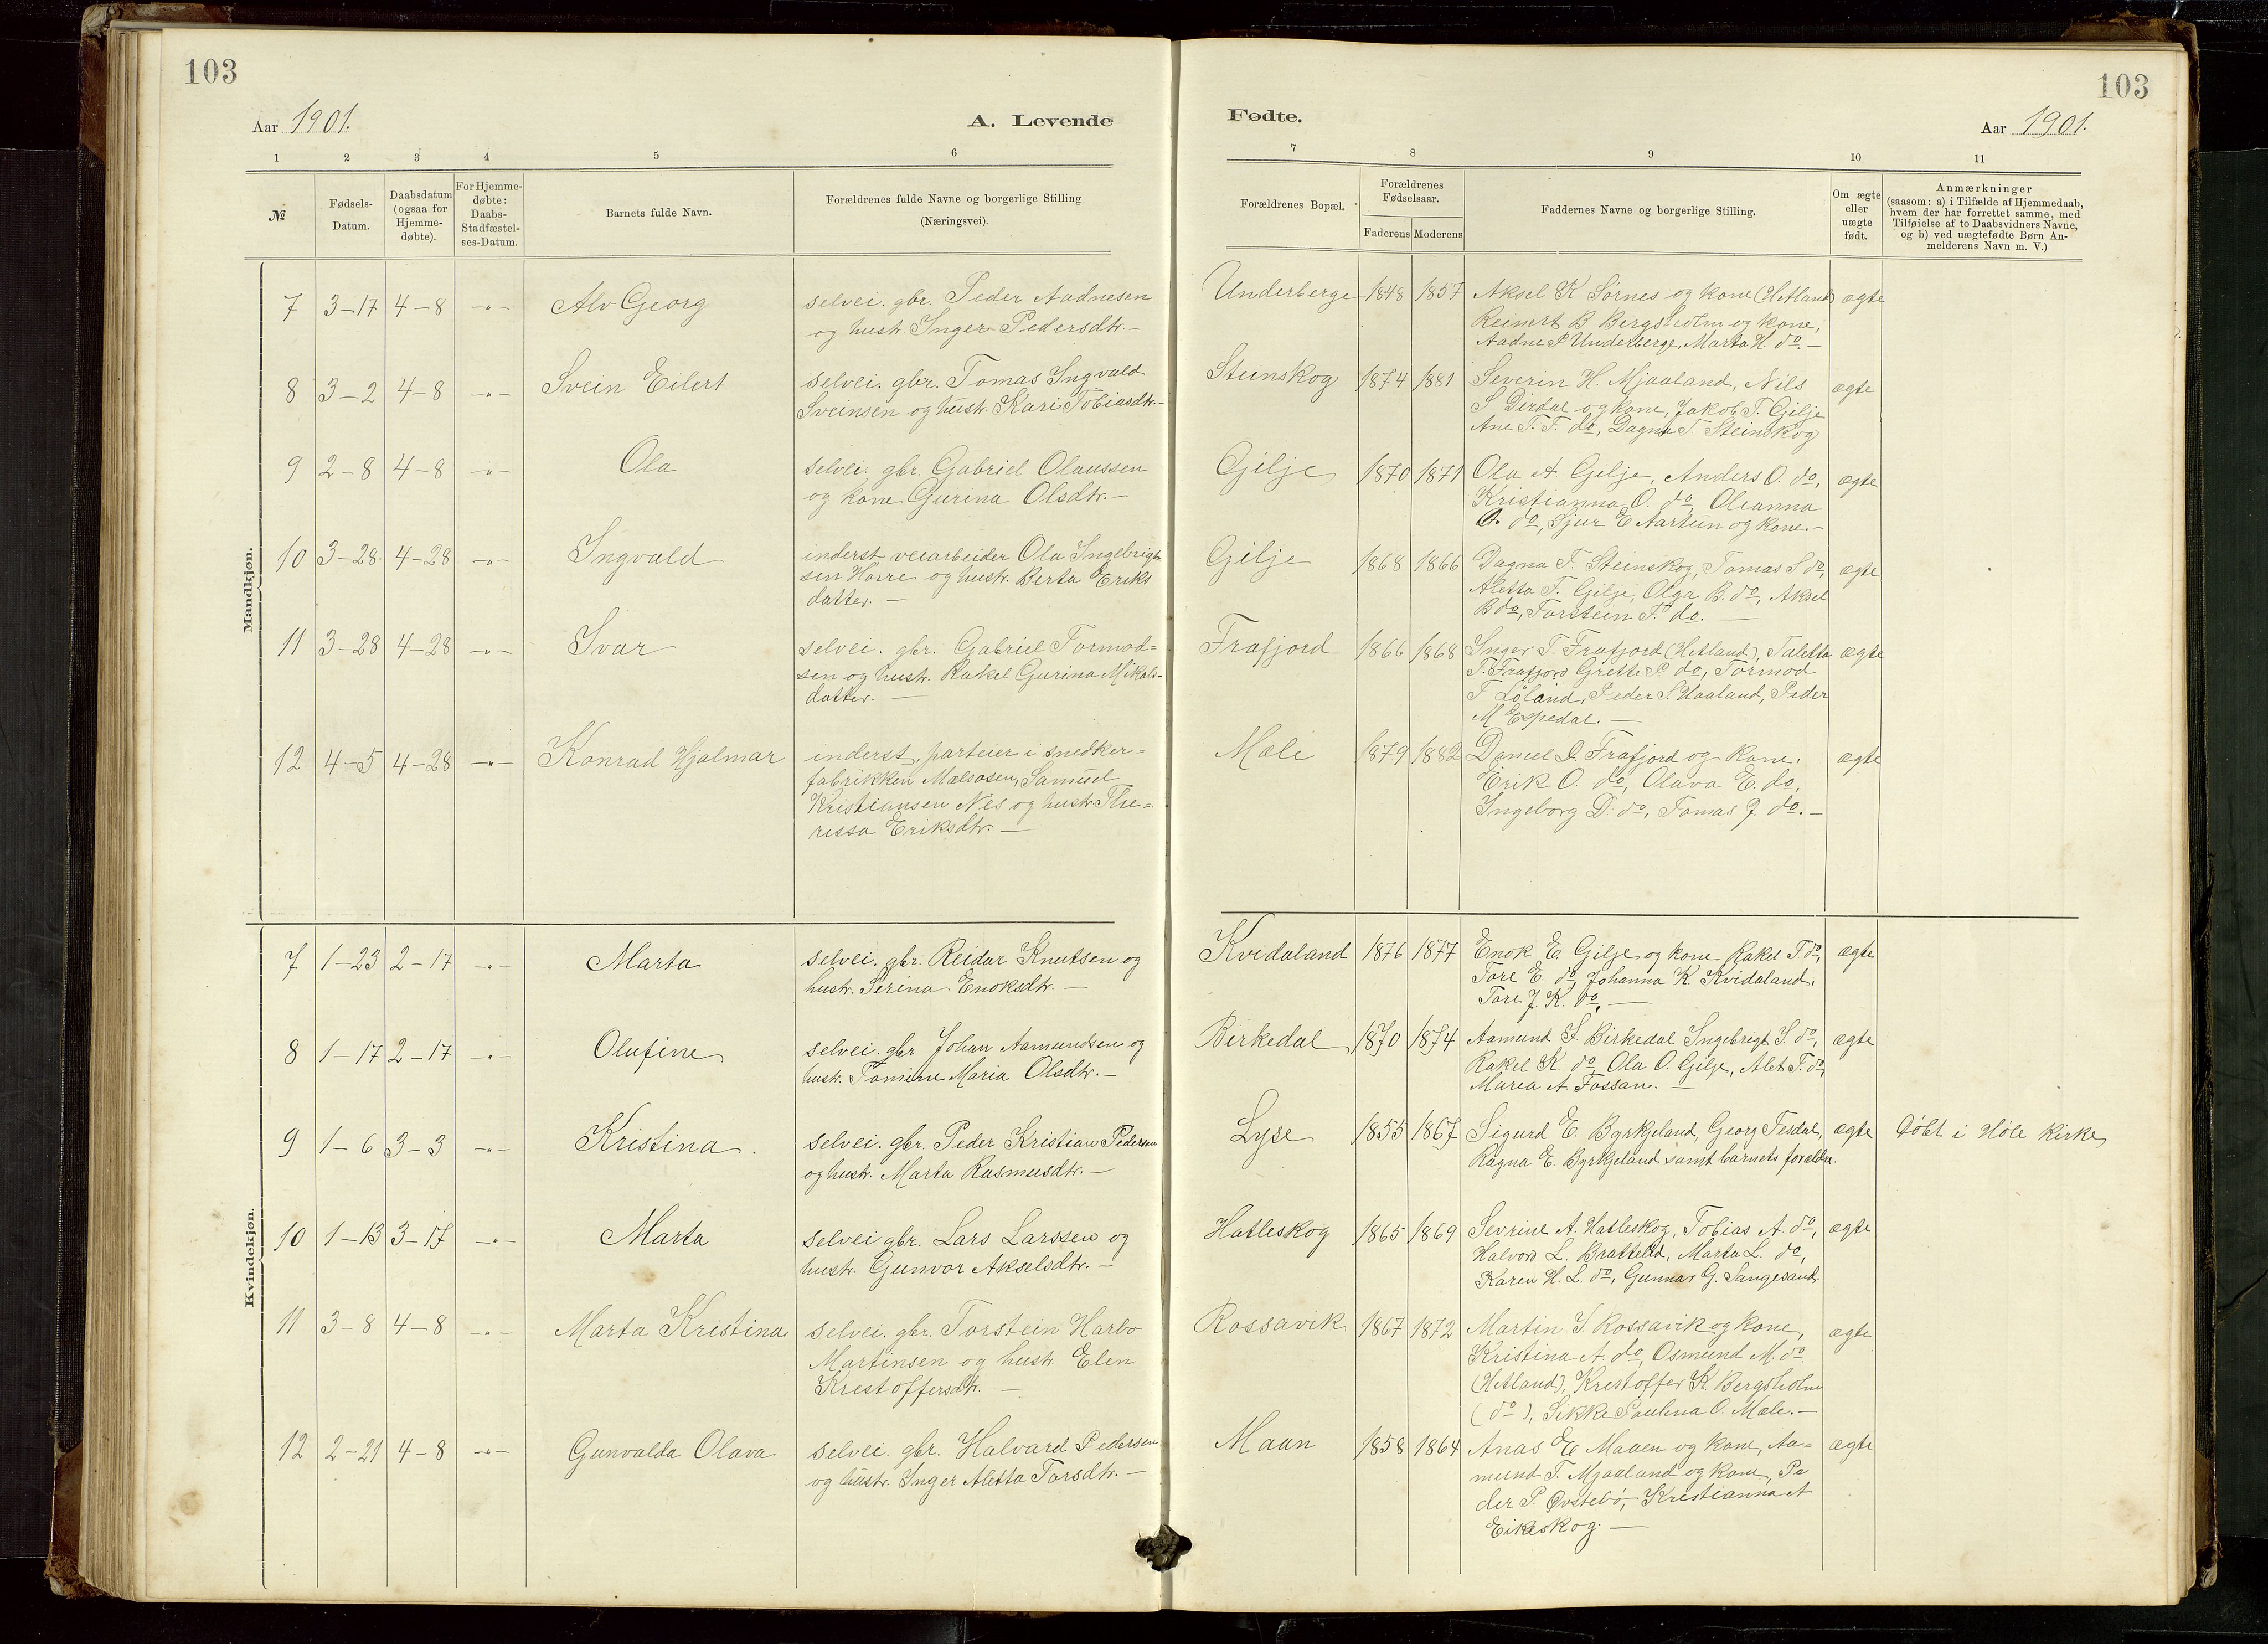 103
103
Aar 1901.
A. Levende
Fødte.
Aar 1901.
1 2 3 4 5 6
7 8 9 10 11
№
Fødsels-
Datum.
Daabsdatum
(ogsaa for
Hjemme-
døbte).
For Hjemme-
døbte:
Daabs-
Stadfæstel-
ses-Datum.
Barnets fulde Navn.
Forældrenes fulde Navne og borgerlige Stilling
(Næringsvei).
Forældrenes Bopæl.
Forældrenes
Fødselsaar.
Faderens Moderens
Faddernes Navne og borgerlige Stilling.
Om ægte
eller
uægte
født.
Anmærkninger
(saasom: a) i Tilfælde af Hjemmedaab,
hvem der har forrettet samme, med
Tilføielse af to Daabsvidners Navne,
og b) ved uægtefødte Børn An-
melderens Navn m. V.)
Mandkjøn.
7 3-17 4-8 -"- Alv Georg
selvei. gbr. Peder Aadnesen
og hustr. Inger Pedersdtr. -
Underberge 1848 1857
Aksel K Sørnes og kone (Hetland)
Reimert B Bergsholm og kone,
Aadne P Underberge, Marta H. do. -
ægte
8 3-2 4-8 -"- Svein Eilert
selvei. gbr. Tomas Ingvald
Sveinsen og hustr. Kari Tobiasdtr. -
Steinskog 1874 1881
Severin H. Mjaaland, Nils
S Dirdal og kone, Jakob T. Gilje
Ane T. T. do, Dagna T. Steinskog
ægte
9 2-8 4-8 -"- Ola
selvei. gbr. Gabriel Olaussen
og kone Gurina Olsdtr. -
Gilje 1870 1871
Ola A. Gilje, Anders O. do,
Kristianna O. do, Oleanna
O. do, Sjur E Aartun og kone. -
ægte
10 3-28 4-28 -"- Ingvald
inderst veiarbeider Ola Ingebrigt-
sen Horre og hustr. Berta Eriks
datter. -
Gilje 1868 1866
Dagna T. Steinskog, Tomas S do,
Aletta T. Gilje, Olga B. do, Aksel
B do, Torstein T. do. -
ægte
11 3-28 4-28 -"- Ivar
selvei. gbr. Gabriel Tormod=
sen og hustr. Rakel Gurina Mikals-
datter. -
Frafjord 1866 1868
Inger T. Frafjord (Hetland), Taletta
T. Frafjord Grette P. do, Tormod
T Løland, Peder S. Haaland, Peder
M Espedal. -
ægte
12 4-5 4-28 -"- Konrad Hjalmar
inderst, parteier i snedker=
fabrikken Mælsosen, Samuel
Kristiansen Nes og hustr. The=
ressa Eriksdtr. -
Mæle 1879 1882
Daniel I. Frafjord og kone,
Erik O. do, Olava E. do,
Ingeborg D. do, Tomas J. do. -
ægte
Kvindekjøn.
7 1-23 2-17 -"- Marta
selvei. gbr. Reidar Knutsen og
hustr. Serena Enoksdtr. -
Kvidaland 1876 1877
Enok E. Gilje og kone Rakel T. do,
Tore E. do, Johanna K. Kvidaland,
Tore J. K. do, -
ægte
8 1-17 2-17 -"- Olufine
selvei. gbr Johan Aamundsen og
hustr. Tomine Maria Olsdtr. -
Birkedal 1870 1874
Aamund S. Birkedal Ingebrigt S. do,
Rakel K. do, Ola O. Gilje, Alet T. do,
Marea A Fossan. -
ægte
9 1-6 3-3 -"- Kristina.
selvei. gbr. Peder Kristian Pedersen
og hustr. Marta Rasmusdtr. -
Lyse 1855 1867
Sigurd E. Byrkjeland, Georg Tesdal,
Ragna E. Byrkjeland samt barnets forældre.
ægte
Døbt i Høle kirke
10 1-13 3-17 -"- Marta
selvei gbr. Lars Larssen og
hustr. Gunvor Akselsdtr. -
Hatleskog 1865 1869
Sevrine A. Hatleskog, Tobias A. do,
Halvord L. Bratteld, Marta L. do,
Karen H. L. do, Gunnar G. Sangesand.
ægte
11 3-8 4-8 -"- Marta Kristina
selvei. gbr. Torstein Harbo
Martinsen og hustr Elen
Krestoffersdtr. -
Rossavik 1867 1872
Martin S Rossavik og kone,
Kristina A do, Osmund M. do
(Hetland), Krestoffer K. Bergsholm
(do), Sikke Paulina O. Mæle. -
ægte
12 2-21 4-8 -"- Gunvalda Olava
selvei gbr. Halvard Pedersen
og hustr. Inger Aletta Torsdtr. -
Maan 1858 1864
Anas E Maaen og kone, Aa=
mund T. Mjaaland og kone, Pe
der P. Øvstebø, Kristianna A
Eikeskog. -
ægte